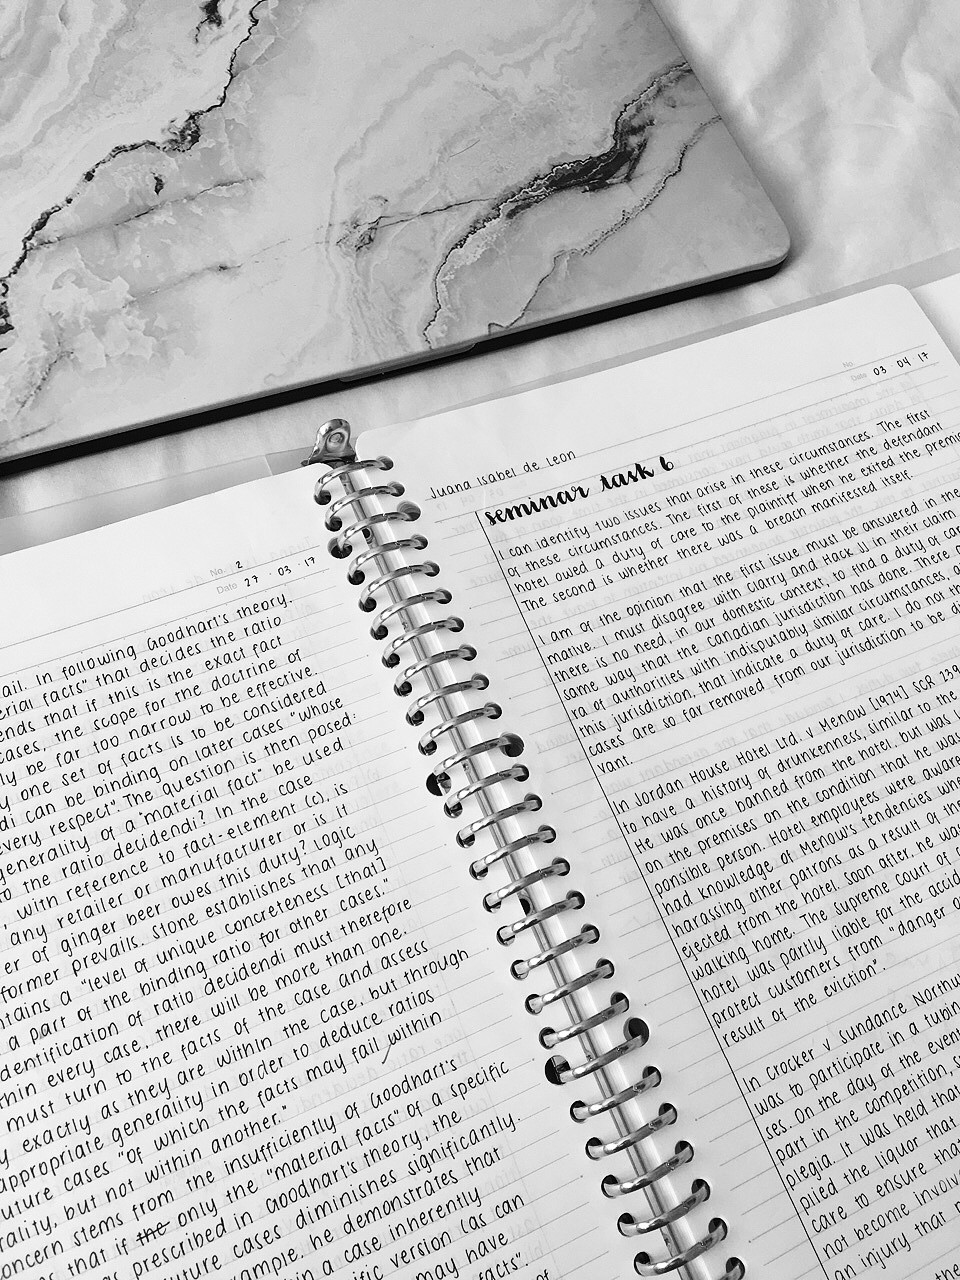 No. 2
Date 27 · 03 · 17
ail. In following Goodhart's theory.
erial facts" that decides the ratio
ends that if this is the exact fact
cases, the scope for the doctrine of
ly be far too narrow to be effective.
y one set of facts is to be considered
di can be binding on later cases "whose
every respect". The question is then posed:
generality of a "material fact" be used
to the ratio decidendi? In the case
with reference to fact-element (c), is
'any retailer or manufacturer or is it
er of ginger beer owes this duty? Logic
former prevails. Stone establishes that any
ntains a "level of unique concreteness [that]
a part of the binding ratio for other cases."
dentification of ratio decidendi must therefore
thin every case, there will be more than one.
must turn to the facts of the case and assess
y exactly as they are within the case, but through
appropriate generality in order to deduce ratios
uture cases "of which the facts may fall within
rality, but not within another."
oncern stems from the insufficiently of Goodhart's
s that if the only the "material facts" of a specific
as prescribed in Goodhart's theory, the
future cases diminishes significantly.
xample, he demonstrates that
in a case inherently
ific version (as can
may have
facts".
of
No.
Date 03 04 17
Juana Isabel de Leon
seminar task 6
I can identify two issues that arise in these circumstances. The first
of these circumstances. The first of these is whether the defendant
hotel owed a duty of care to the plaintiff when he exited the premi
The second is whether there was a breach manifested itself.
I am of the opinion that the first issue must be answered in the
mative. I must disagree with Clarry and Hack JJ in their claim
there is no need, in our domestic context, to find a duty of car
same way that the Canadian jurisdiction has done. There a
ra of authorities with indisputably similar circumstances, a
this jurisdiction, that indicate a duty of care. I do not th
cases are so far removed from our jurisdiction to be di
vant.
In Jordan House Hotel Ltd. v Menow [1974] SCR 239
to have a history of drunkenness, similar to the
He was once banned from the hotel, but was l
on the premises on the condition that he was
ponsible person. Hotel employees were aware
had knowledge of Menow's tendencies whe
harassing other patrons as a result of th
ejected from the hotel. Soon after, he wa
walking home. The Supreme Court of
hotel was partly liable for the accid
protect customers from "danger a
result of the eviction".
In Crocker v Sundance Northw
was to participate in a tubi
ses. On the day of the event
part in the competition, s
plegia. It was held that
plied the liquor that
care to ensure that
not become involv
an injury that